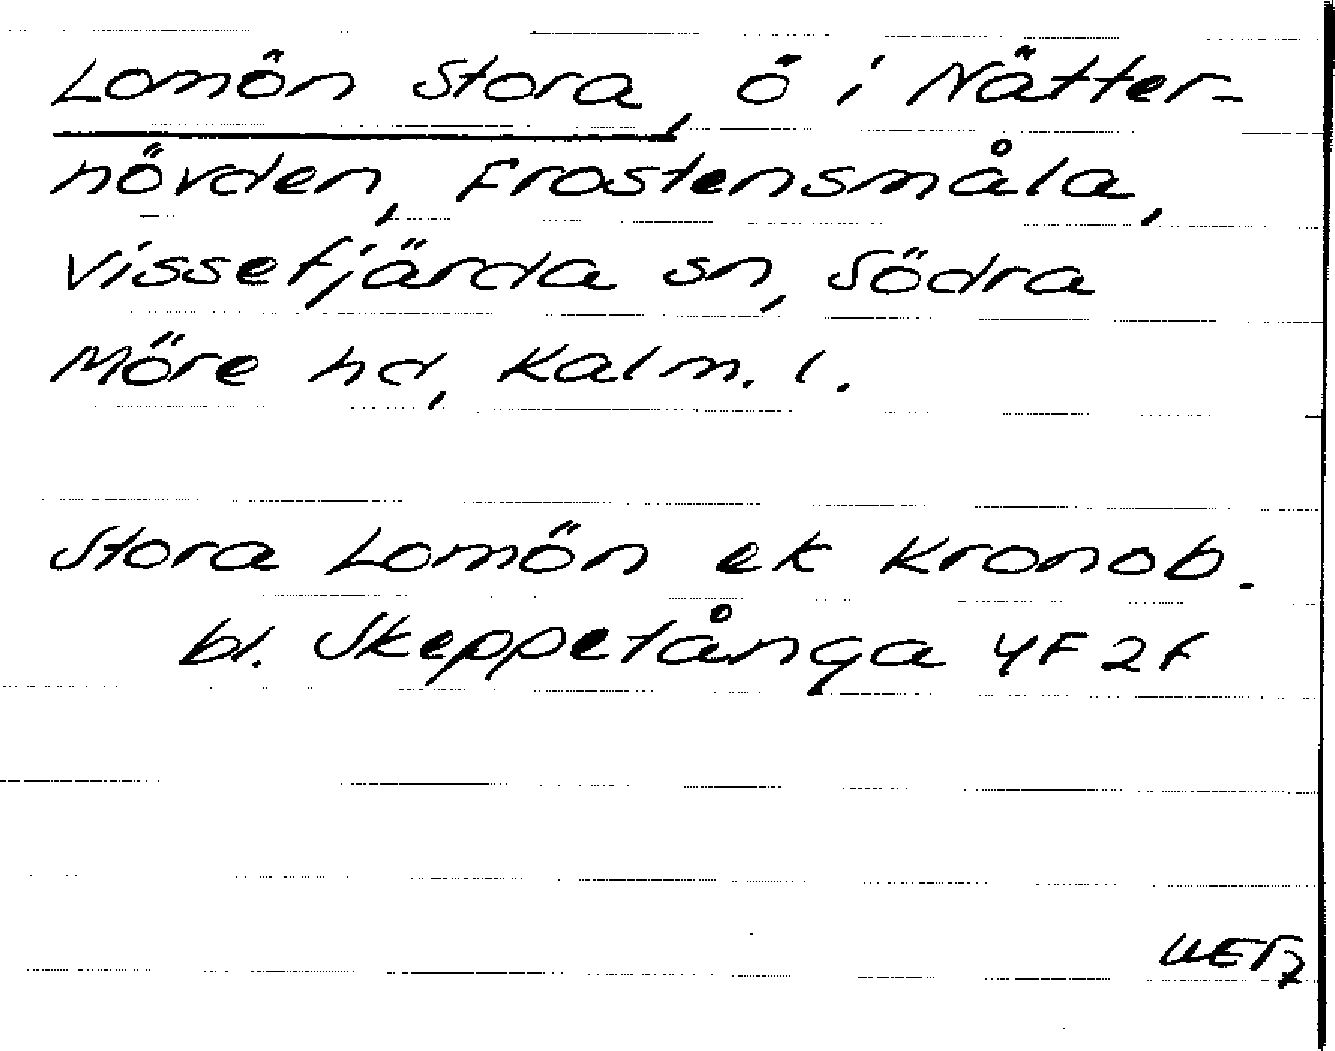 Lomön Stora, ö i Nätter-
hövden, Frostensmåla,
Vissefjärda sn, Södra
Möre hd, Kalm. l.
Stora Lomön ek Kronob.
bl. Skeppetånga 4F 2f